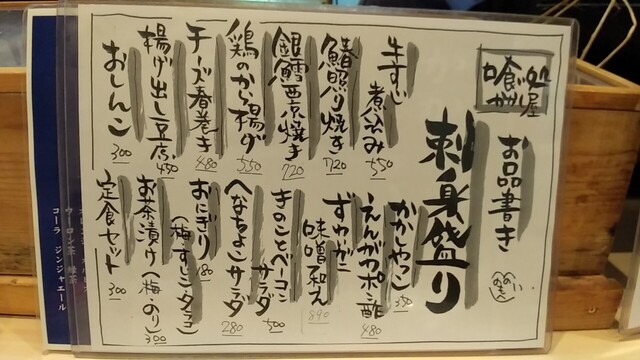 喰処
喰屋
お品書き
刺身盛り
牛すじ煮込み 550
鰆照り焼き 720
銀鱈西京焼き 720
鶏のから揚げ 550
チーズ春巻き 480
揚げ出し豆腐 450
おしんこ 300
かかしやっこ 350
えんがわポン酢 480
ずわがニ味噌和え 890
きのことベーコンサラダ 500
へなちょこサラダ 280
おにぎり 180
(梅・すじこ・タラコ)
お茶漬け(梅・のり) 300
定食セット 300
ウーロン茶 緑茶
コーラ ジンジャエール